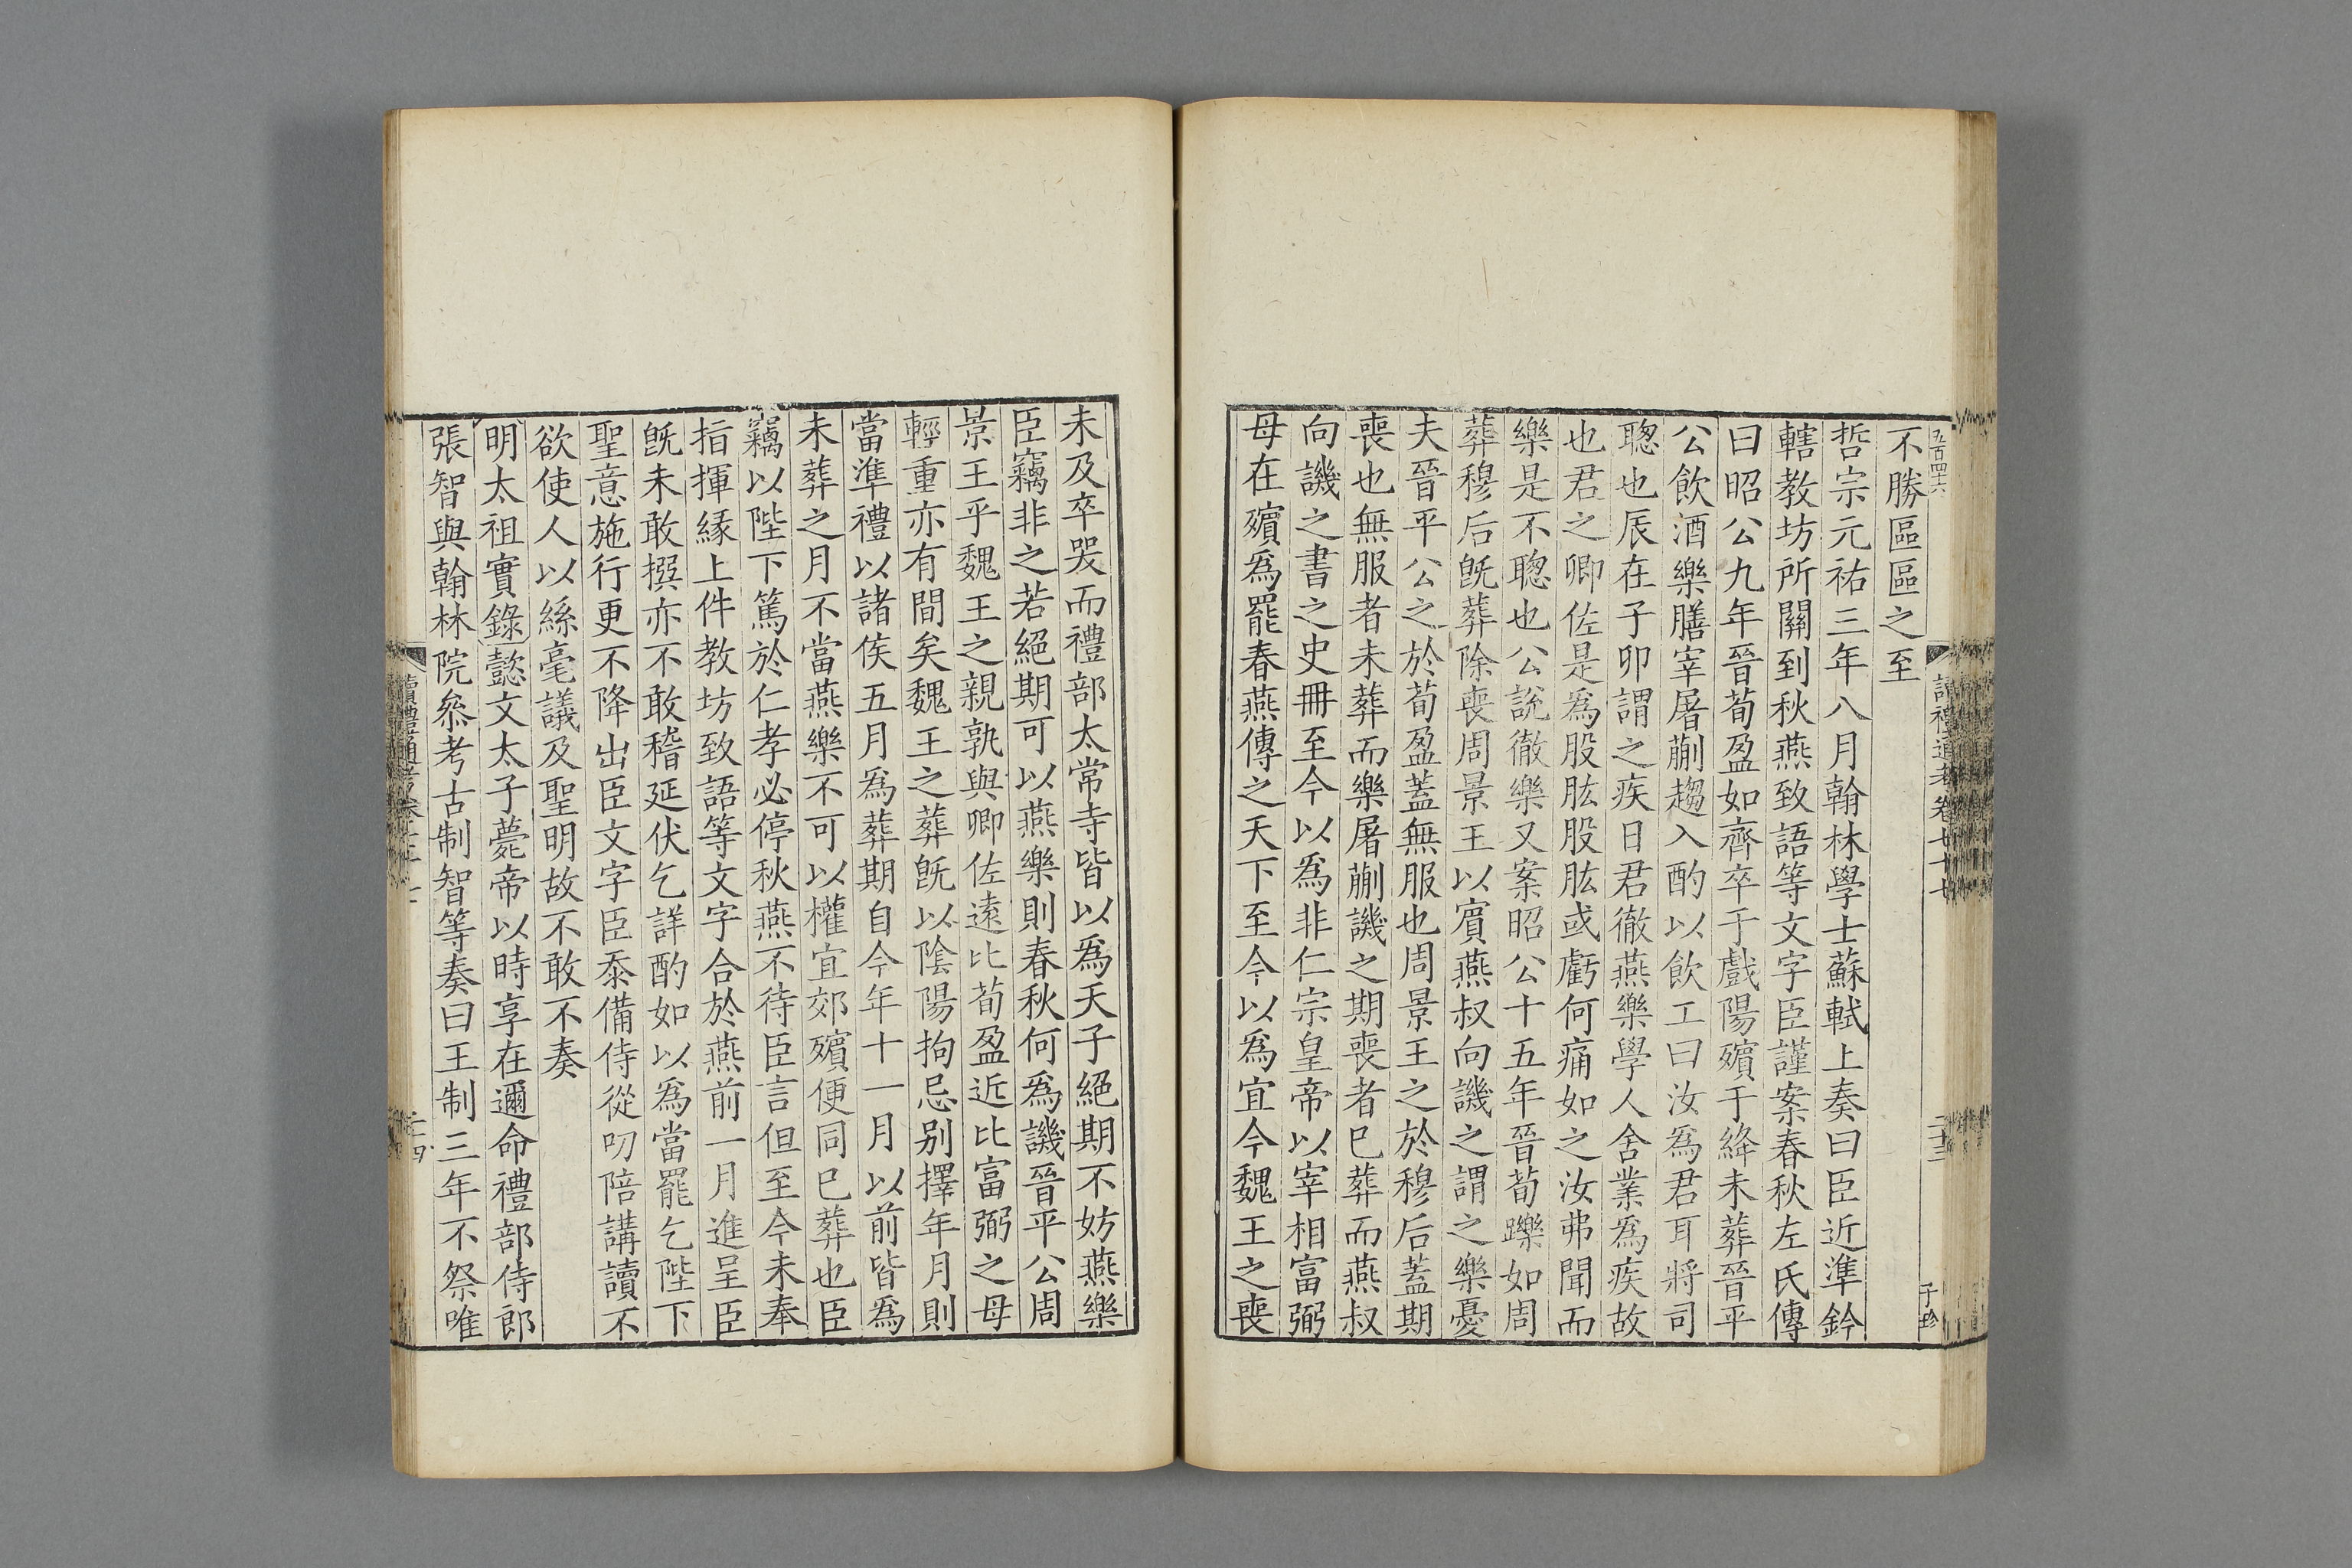 五百四十六
讀禮通考卷七十七
二十三
子珍
不勝區區之至
哲宗元祐三年八月翰林學士蘇軾上奏曰臣近準鈐
轄教坊所關到秋燕致語等文字臣謹案春秋左氏傳
曰昭公九年晉荀盈如齊卒于戲陽殯于絳未葬晉平
公飲酒樂膳宰屠蒯趨入酌以飲工曰汝爲君耳將司
聰也辰在子卯謂之疾日君徹燕樂學人舍業爲疾故
也君之卿佐是爲股肱股肱或虧何痛如之汝弗聞而
樂是不聰也公說徹樂又案昭公十五年晉荀躒如周
葬穆后旣葬除喪周景王以賓燕叔向譏之謂之樂憂
夫晉平公之於荀盈蓋無服也周景王之於穆后蓋期
喪也無服者未葬而樂屠蒯譏之期喪者已葬而燕叔
向譏之書之史冊至今以爲非仁宗皇帝以宰相富弼
母在殯爲罷春燕傳之天下至今以爲宜今魏王之喪
未及卒哭而禮部太常寺皆以爲天子絕期不妨燕樂
臣竊非之若絕期可以燕樂則春秋何爲譏晉平公周
景王乎魏王之親孰與卿佐遠比荀盈近比富弼之母
輕重亦有間矣魏王之葬旣以陰陽拘忌别擇年月則
當準禮以諸侯五月爲葬期自今年十一月以前皆爲
未葬之月不當燕樂不可以權宜郊殯便同已葬也臣
竊以陛下篤於仁孝必停秋燕不待臣言但至今未奉
指揮緣上件教坊致語等文字合於燕前一月進呈臣
旣未敢撰亦不敢稽延伏乞詳酌如以爲當罷乞陛下
聖意施行更不降出臣文字臣忝備侍從叨陪講讀不
欲使人以絲毫議及聖明故不敢不奏
明太祖實錄懿文太子薨帝以時享在邇命禮部侍郎
張智與翰林院叅考古制智等奏曰王制三年不祭唯
讀禮通考卷七十七
二十四